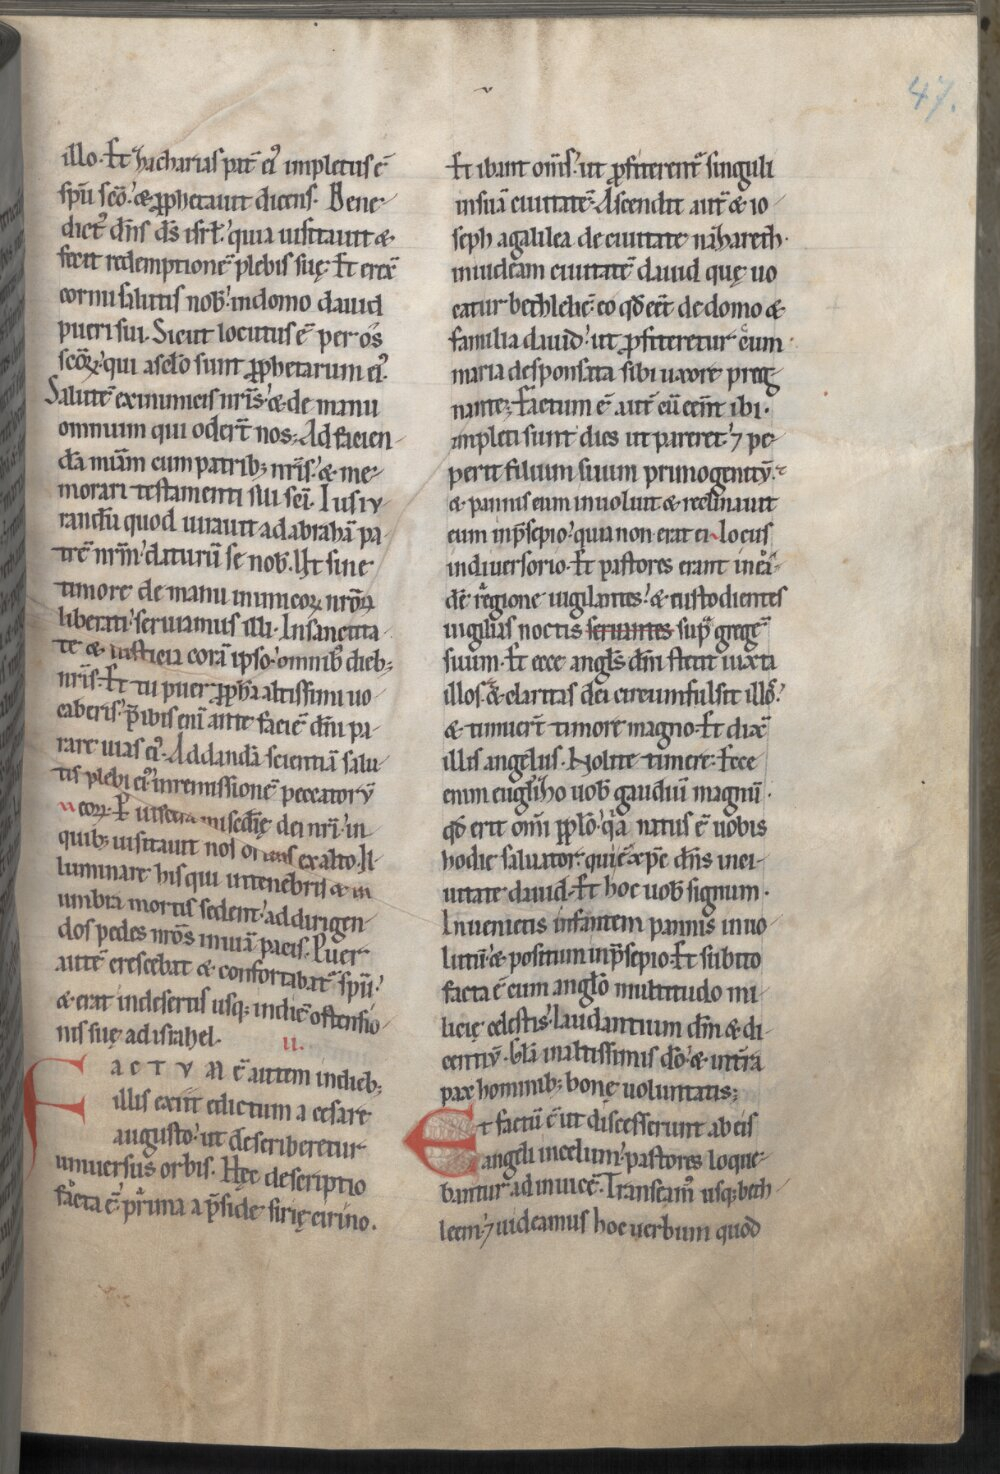 47.
illo. Et zacharias pat̄ ei᾽ impletus ē
sp̄u sc̄o. & ꝓphetauit dicens. Bene-
dict᾽ dn̄s ds̄ isrł. quia uisitauit &
fecit redemptionē plebis suę. Et erex̄
cornu salutis nob̄. indomo dauid
pueri sui. Sicut locutus ē per os
sc̄oꝝ. qui asclo sunt ꝓphetarum ei᾽.
Salutē exinimicis nr̄is. & de manu
omnium qui oder̄t nos; Ad facien-
dā miam̄ cum patrib; nr̄is. & me-
morari testamenti sui sc̄i. Iusiu
randū quod iurauit ad abrahā pa-
trē nr̄m daturū se nob̄. Ut sine
timore de manu inimicoꝝ nr̄oꝝ
liberati. seruiamus illi. In sanctita-
te & iusticia corā ipso. omnib᾽ dieb;
nr̄is. Et tu puer ꝓpha altissimi uo-
caberis. p̄ibis eni ante faciē dn̄i pa-
rare uias ei᾽. Addandā scientiā salu-
tis plebi ei᾽. in remissionē peccatorū
eoꝝ. P uiscera misc̄dię dei nr̄i. in
quib; uisitauit nos oriens exalto. Il-
luminare his qui intenebris & in
umbra mortis sedent. ad dirigen-
dos pedes nr̄os inuiā pacis. Puer
autē crescebat & confortabat᾽ sp̄u.
& erat indesertis usq; indiē ostensio-
nis suę ad israhel. u.
FACTUM ē autem indieb;
illis exiit edictum a cesare
augusto. ut describeretur
uniuersus orbis. Hęc descriptio
facta ē prima a p̄side sirię cirino.
Et ibant om̄s. ut ꝓfiterent᾽ singuli
insuā ciuitatē. Ascendit aut̄ & io-
seph agalilea de ciuitate nazareth.
iniudeam ciuitatē dauid quę uo-
catur bethlehē. eo qd̄ eēt de domo &
familia dauid. ut ꝓfiteretur cum
maria desponsata sibi uxore preg-
nante; Factum ē aut̄ cū eēnt ibi.
impleti sunt dies ut pareret. ⁊ pe-
perit filium suum primogenitū.
& pannis eum inuoluit & reclinauit
eum inp̄sepio. quia non erat ei locus
indiuersorio. Et pastores erant inea-
dē regione uigilantes. & custodientes
uigilias noctis seruantes sup̄ gregē
suum. Et ecce angłs dn̄i stetit iuxta
illos. & claritas dei circumfulsit illos.
& timuer̄t timore magno. Et dix̄
illis angelus. Nolite timere. Ecce
enim eugłizo uob̄ gaudiū magnū.
qd̄ erit om̄i pplo. qa natus ē uobis
hodie saluator. qui ē xp̄c dn̄s inci-
uitate dauid. Et hoc uob̄ signum.
Inuenietis infantem pannis inuo-
lutū. & positum inp̄sepio. Et subito
facta ē cum angło multitudo mi-
licię celestis. laudantium dm̄ & di-
centiū. gła inaltissimis do. & intr̄a
pax hominib; bonę uoluntatis;
Et factū ē ut discesserunt ab eis
angeli incelum. pastores loque-
bantur adinuicē. Transeam᾽ usq; beth-
leem. ⁊ uideamus hoc uerbum quod